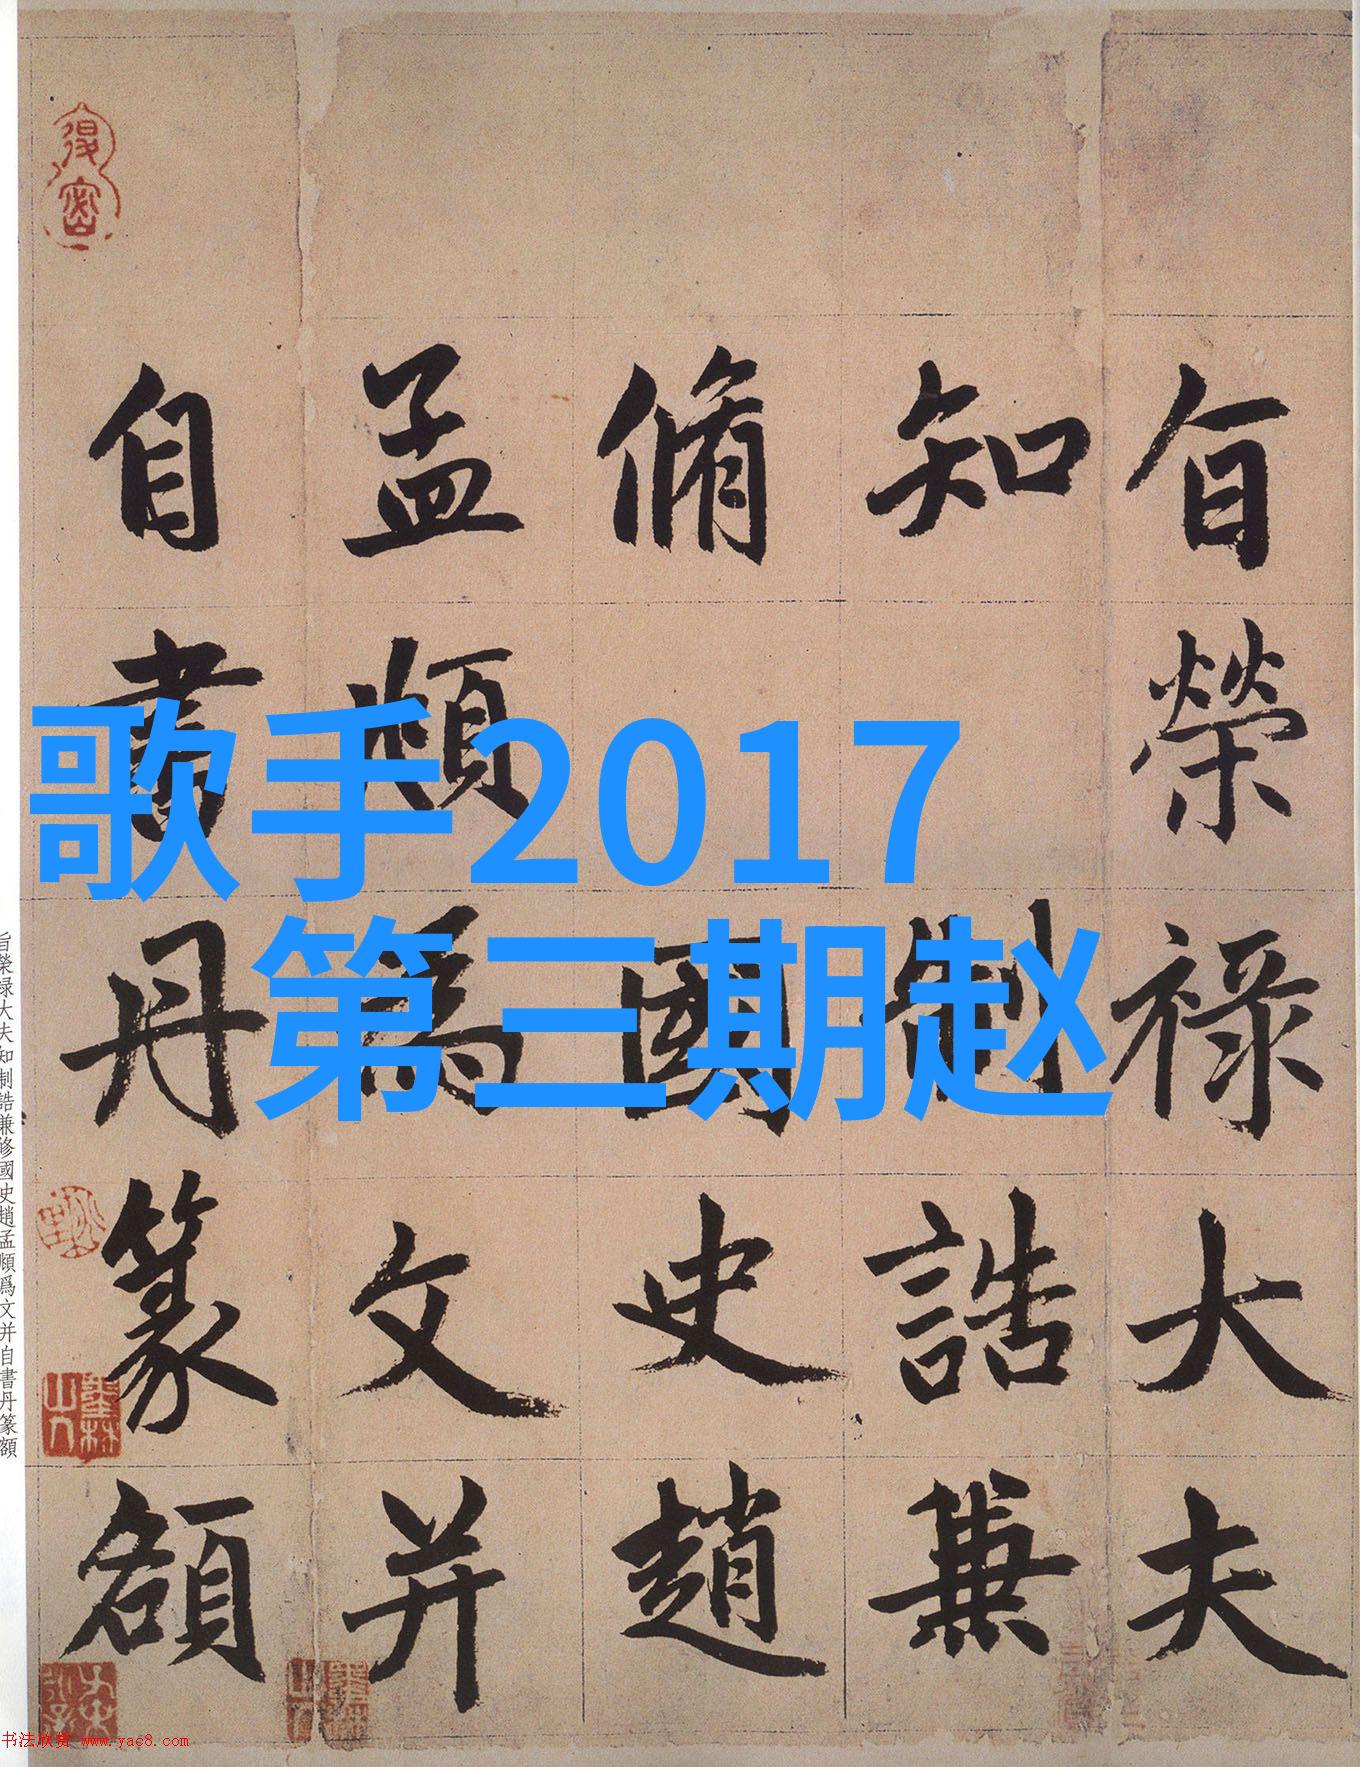 歌手2017
第三期赵
旨榮祿大夫
知制誥兼
脩國史趙
孟頫為文并
自書丹篆額
旨榮禄大夫知制誥兼修國史趙孟頫爲文并自書丹篆額
书法欣赏 www.yac8.com